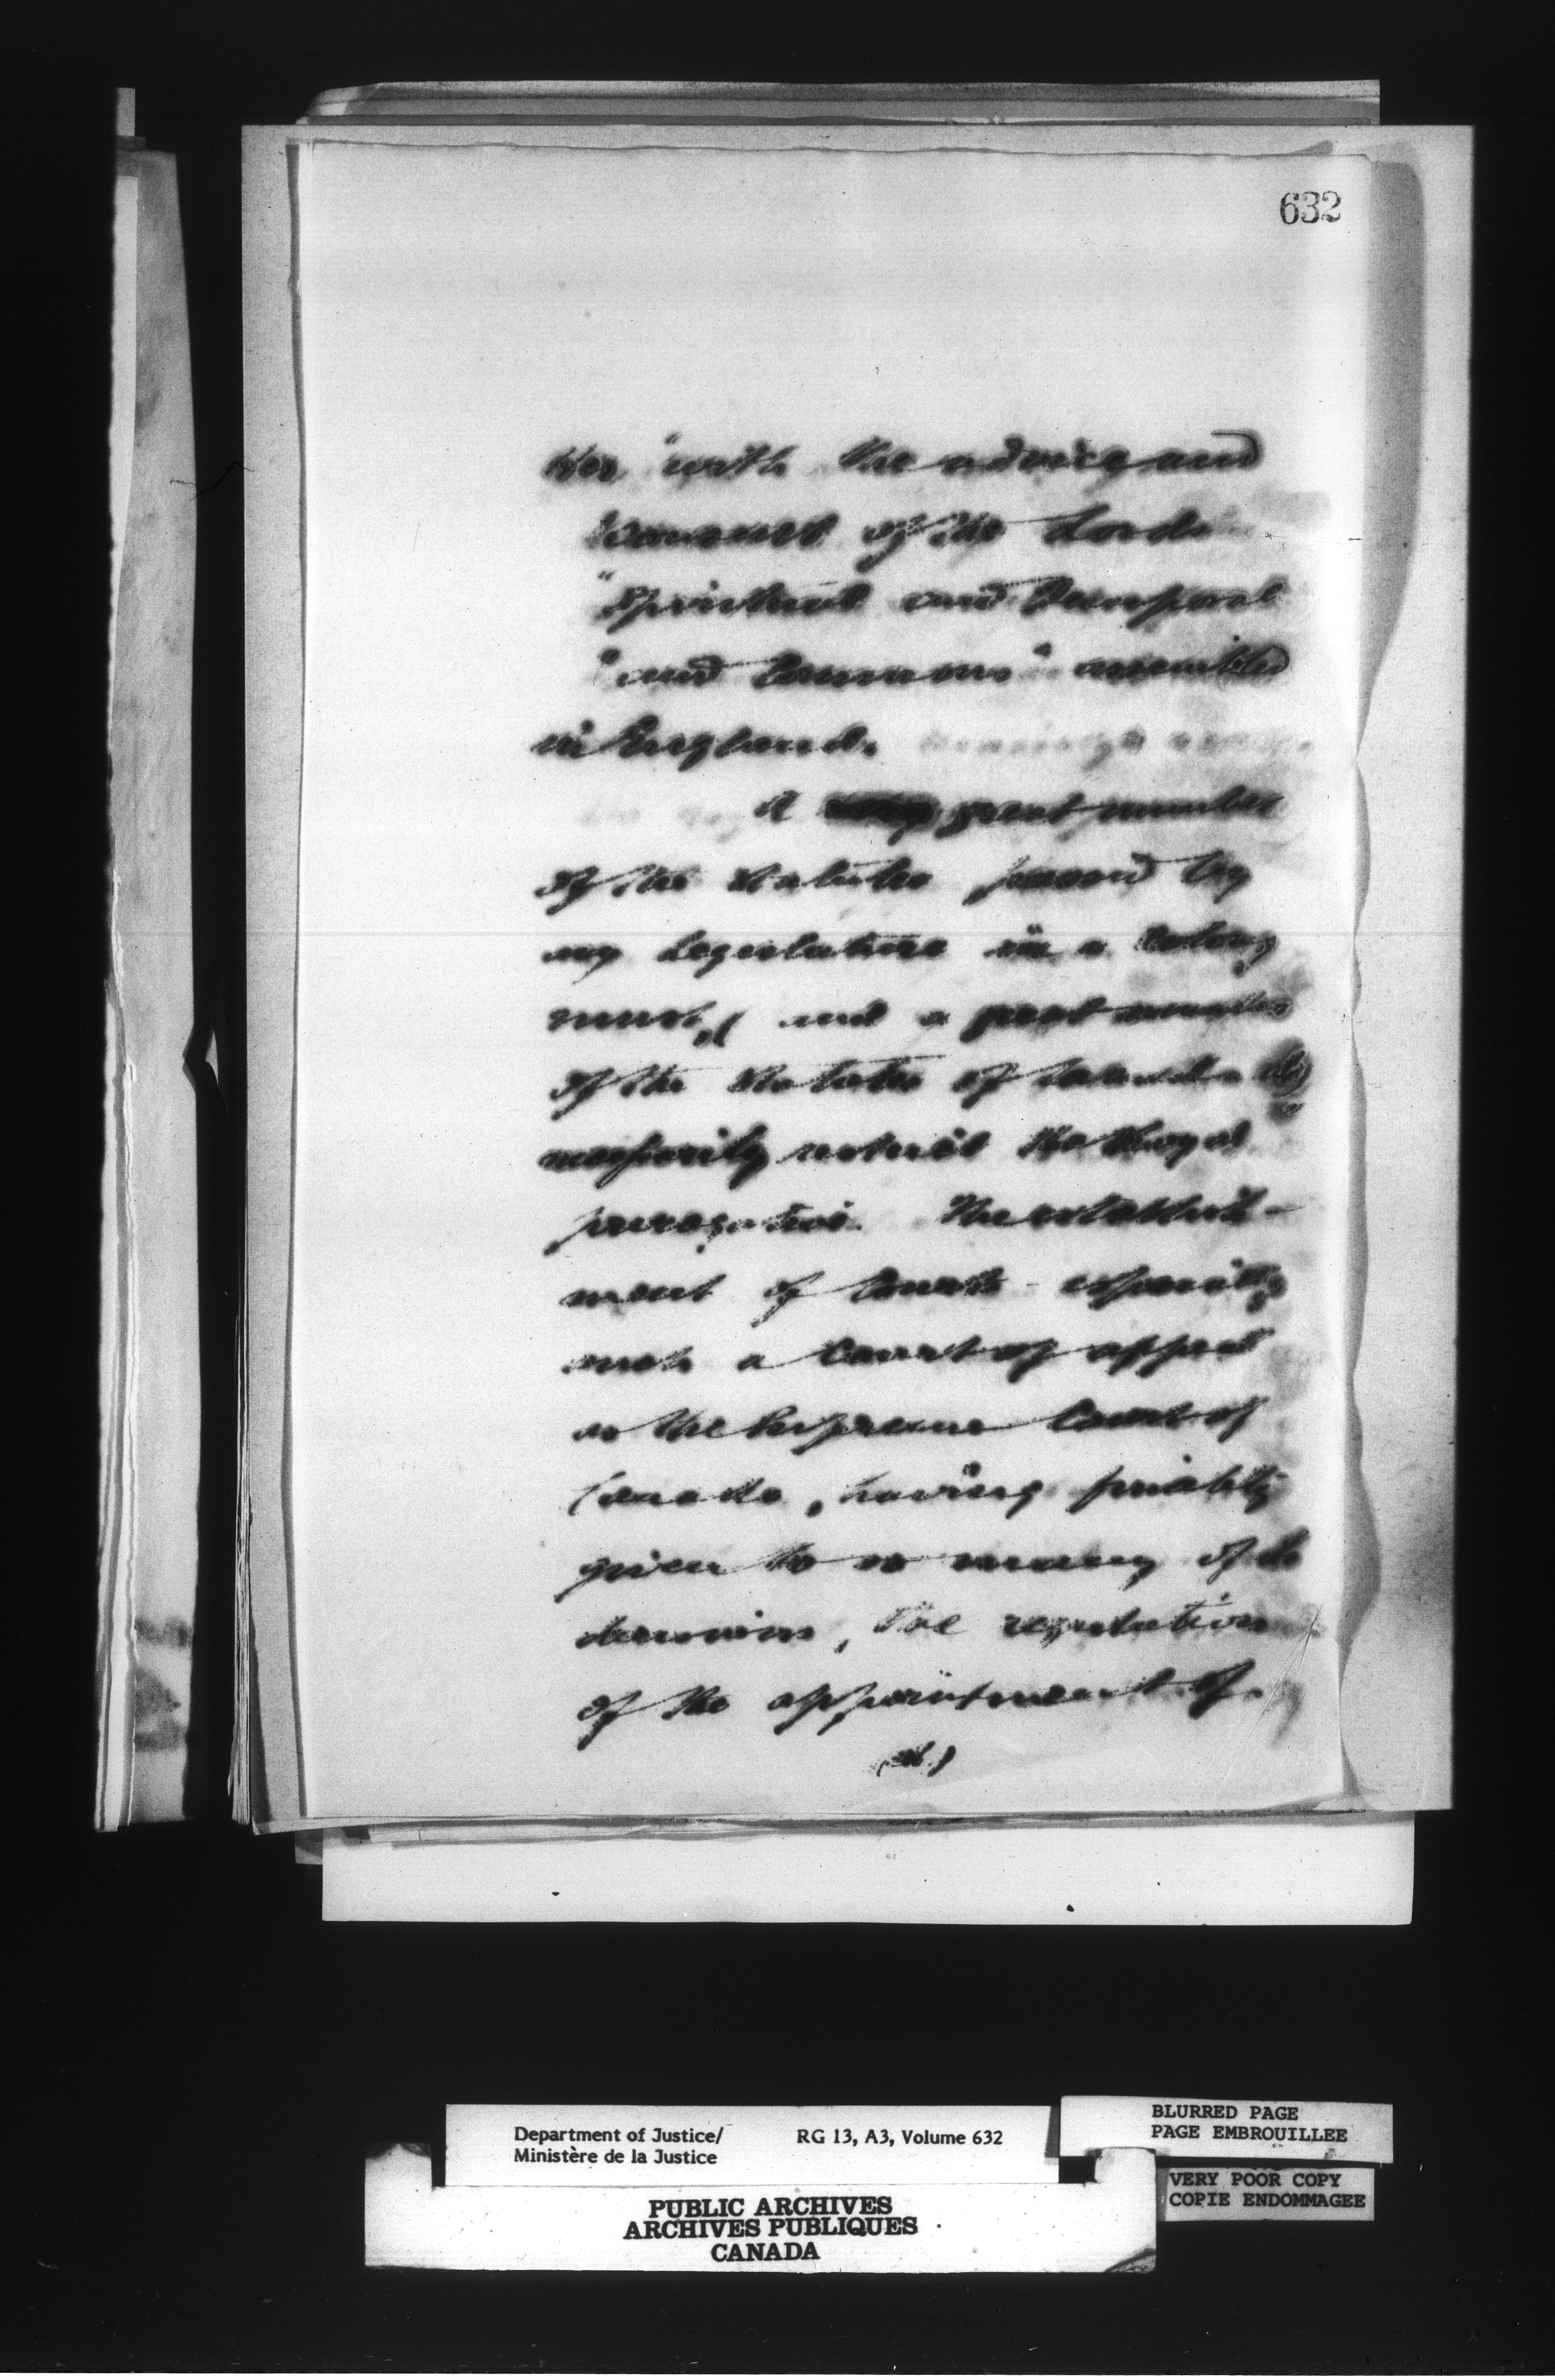 632
Her "with the advice and
"Consent of the Lords
"Spiritual and Temporal
"and Commons" assembled
in England.
A great number
of the Statutes passed by
any Legislature in a Colony
must, and a great number
of the Statutes of Canada do
necessarily restrict the Royal
prerogative. The establish-
ment of Courts - especially
such a Court of appeal
as the Supreme Court of
Canada, having finality
given to so many of its
decisions, the regulation
of the appointment of
Department of Justice/
Ministère de la Justice
RG 13, A3, Volume 632
BLURRED PAGE
PAGE EMBROUILLEE
VERY POOR COPY
COPIE ENDOMMAGEE
PUBLIC ARCHIVES
ARCHIVES PUBLIQUES
CANADA